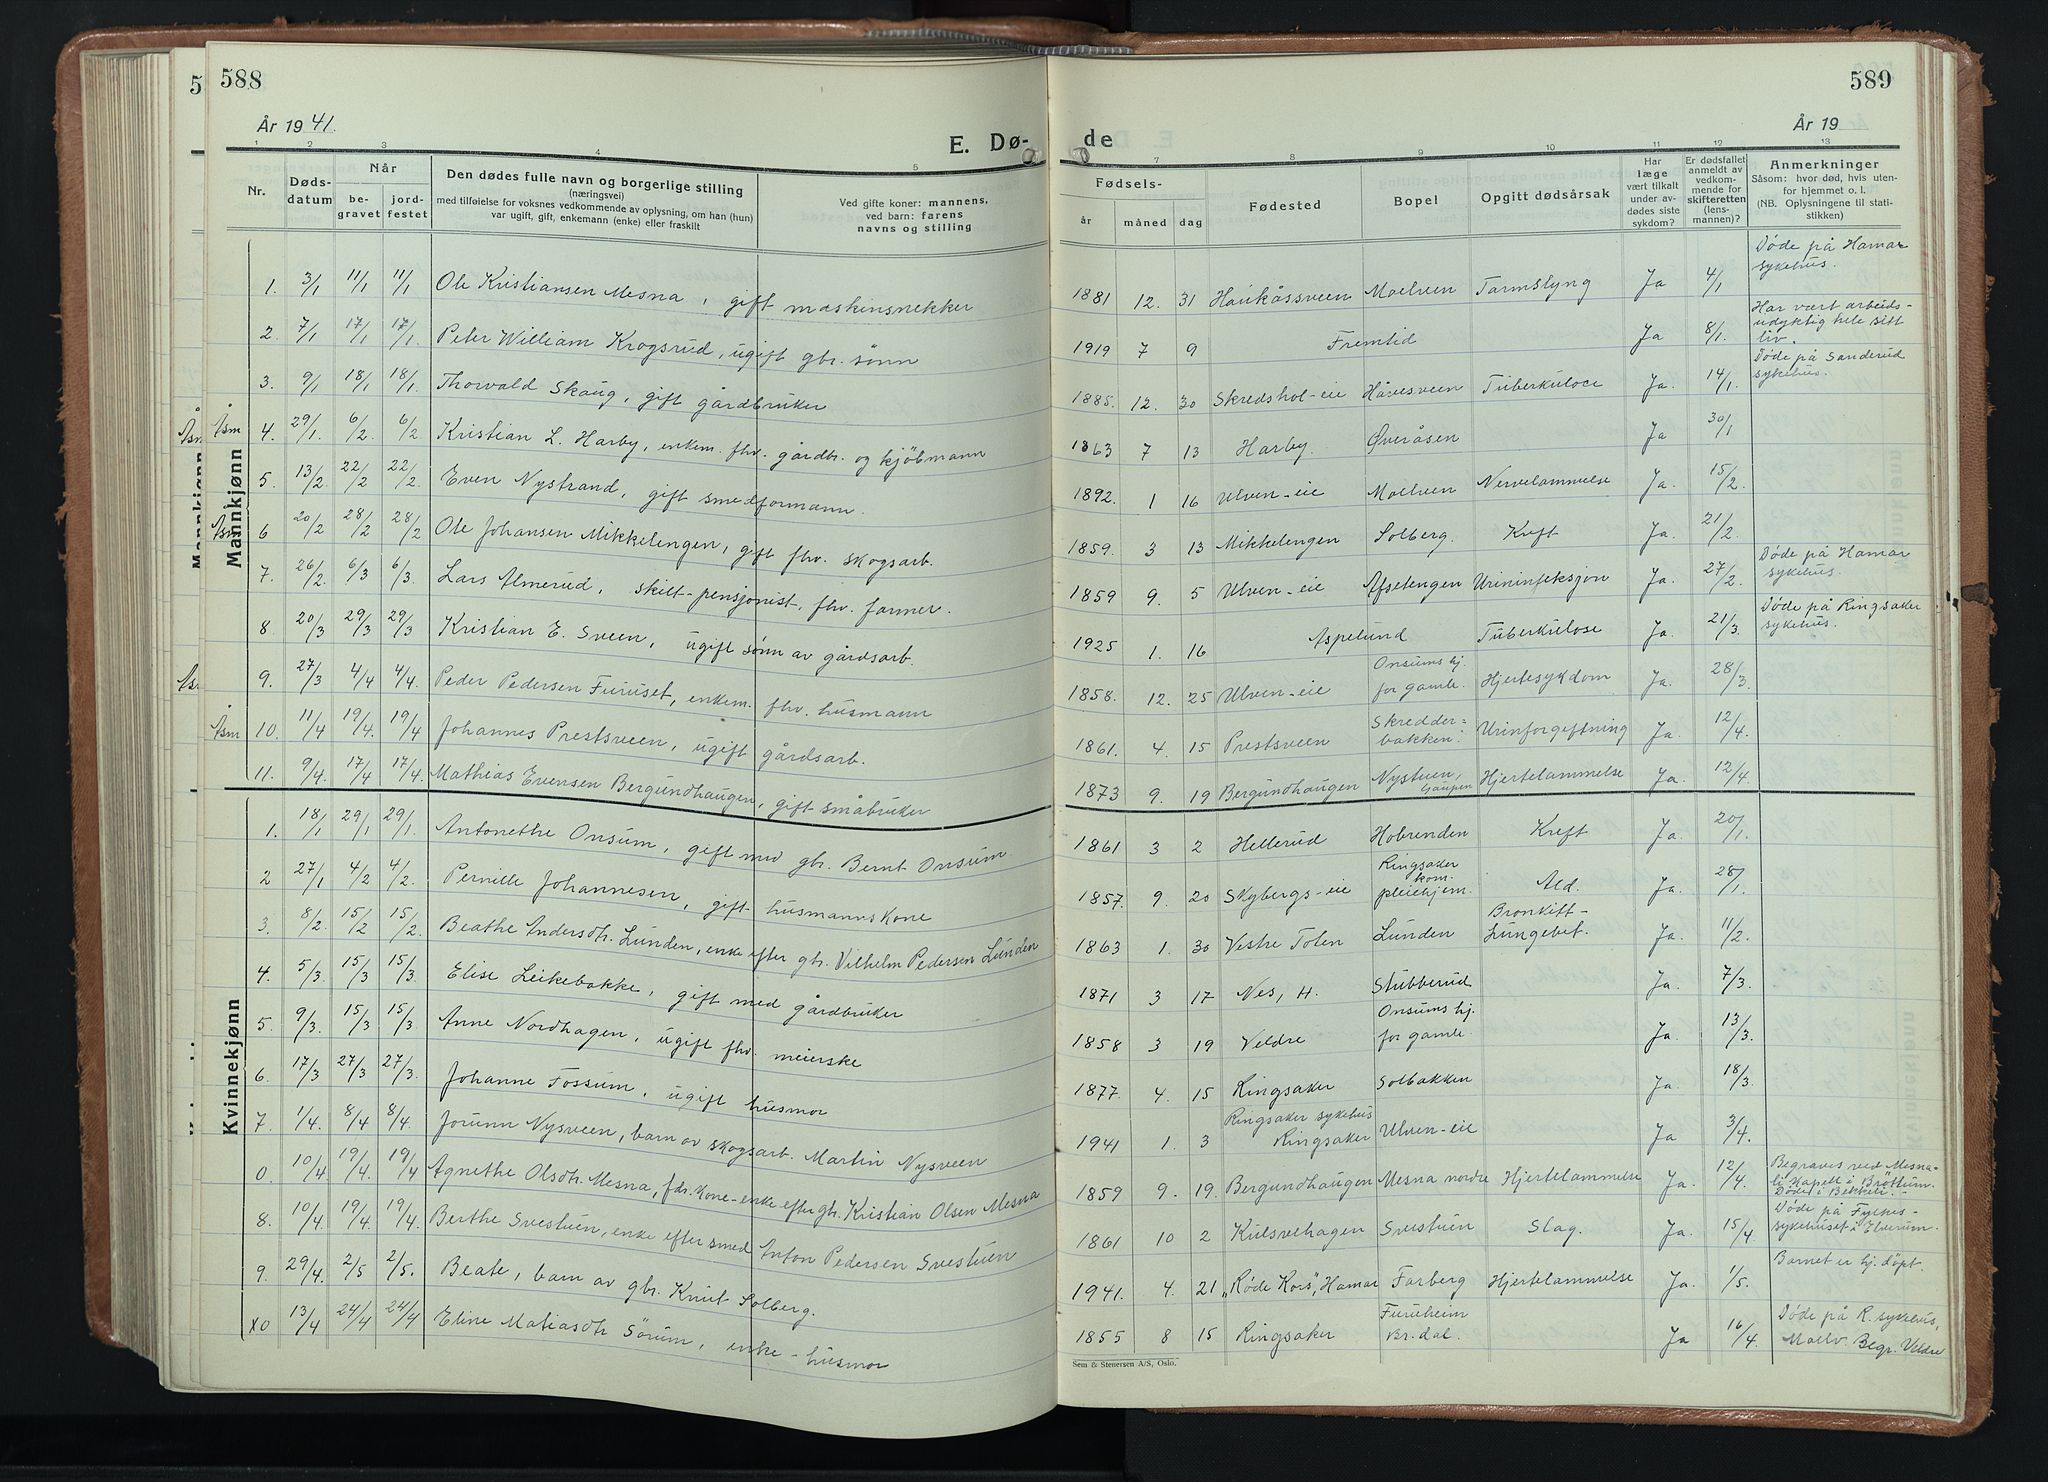 588
År 1941.
E. Dø-
1 2 3 4 5
Nr.
Døds-
datum
Når
be-
gravet
jord-
festet
Den dødes fulle navn og borgerlige stilling
(næringsvei)
med tilføielse for voksnes vedkommende av oplysning, om han (hun)
var ugift, gift, enkemann (enke) eller fraskilt
Ved gifte koner: mannens,
ved barn: farens
navns og stilling
Mannkjønn
1. 3/1 11/1 11/1 Ole Kristiansen Mesna, gift maskinsnekker
2. 7/1 17/1 17/1. Peter William Krogsrud, ugift gbr. sønn
3. 9/1 18/1 18/1. Thorvald Skaug, gift gårdbruker
Åsm 4. 29/1. 6/2. 6/2 Kristian L. Harby, enkem. fhv. gårdbr. og kjøbmann
5. 13/2 22/2 22/2. Even Nystrand, gift smedformann.
Åsm 6 20/2 28/2 28/2 Ole Johansen Mikkelengen, gift fhv. skogsarb.
7. 26/2 6/3 6/3. Lars Almerud, skilt-pensjonist, fhv. farmer.
8 20/3 29/3 29/3 Kristian E. Sveen, ugift sønn av gårdsarb.
9. 27/3 4/4 4/4. Peder Pedersen Furuset, enkem. fhv. husmann
Åsm 10. 11/4 19/4. 19/4 Johannes Prestsveen, ugift gårdsarb.
11. 9/4. 17/4 17/4. Mathias Evensen Bergundhaugen, gift småbruker
Kvinnekjønn
1. 18/1 29/1 29/1. Antonethe Onsum, gift med gbr. Bernt Onsum.
2 27/1 4/2 4/2. Pernille Johannesen, gift husmannskone
3. 8/2. 15/2 15/2. Beathe Andersdtr. Lunden, enke efter gbr. Vilhelm Pedersen Lunden
4. 5/3 15/3 15/3. Elise Leikebakke, gift med gårdbruker
5. 9/3. 15/3 15/3. Anne Nordhagen, ugift fhv. meierske
6. 17/3 27/3 27/3. Johanne Fossum, ugift husmor
7. 1/4. 8/4 8/4. Jorunn Nysveen, barn av skogsarb. Martin Nysveen
0. 10/4. 19/4. 19/4 Agnethe Olsdtr. Mesna, fdr. kone-enke efter gbr. Kristian Olsen Mesna
8. 10/4. 19/4 19/4. Berthe Svestuen, enke efter smed Anton Pedersen Svestuen
9. 29/4. 2/5 2/5. Beate, barn av gbr. Knut Solberg.
X0 13/4 24/4 24/4 Eline Matiasdtr Sørum, enke-husmor
589
År 19
de
7 8 9 10 11 12 13
Fødsels-
år måned dag
Fødested
Bopel
Opgitt dødsårsak
Har
læge
vært tilkalt
under av-
dødes siste
sykdom?
Er dødsfallet
anmeldt av
vedkom-
mende for
skifteretten
(lens-
mannen)?
Anmerkninger
Såsom: hvor død, hvis uten-
for hjemmet o. l.
(NB. Oplysningene til stati-
stikken)
1881 12. 31 Haukåssveen Moelven Tarmslyng Ja 4/1 Døde på Hamar sykehus.
1919 7 9 Fremtid Ja 8/1. Har vært arbeids-udyktig hele sitt liv.
1885. 12. 30 Skredshol-eie Håvesveen Tuberkulose Ja. 14/1. Døde på Sanderud sykehus.
1863 7 13 Harby. Øveråsen Ja 30/1
1892. 1 16 Ulven-eie Moelven Nervelammelse Ja. 15/2
1859. 3 13 Mikkelengen Solberg. Kreft Ja. 21/2.
1859 9. 5 Ulven-eie Afsetengen Urininfeksjon Ja. 27/2. Døde på Hamar sykehus.
1925 1. 16 Aspelund Tuberkulose Ja. 21/3. Døde på Ringsaker sykehus.
1858. 12. 25 Ulven-eie Onsums hj. for gamle. Hjertesykdom Ja. 28/3.
1861. 4. 15 Prestsveen Skredder=bakken. Urinforgiftning Ja. 12/4.
1873 9. 19 Bergundhaugen Nystuen, Gaupen Hjertelammelse Ja. 12/4
1861 3 2 Hellerud Hobrenden Kreft Ja. 20/1.
1857. 9. 20 Skybergs-eie Ringsaker kom. pleiehjem. Ald. Ja. 28/1.
1863 1. 30 Vestre Toten Lunden Bronkitt-Lungebet. Ja. 11/2.
1871 3 17 Nes, H. Stubberud Ja. 7/3.
1858 3 19 Veldre Onsums hj. for gamle. Ja. 13/3.
1877. 4. 15 Ringsaker Solbakken Ja. 18/3.
1941 1. 3 Ringsaker sykehus Ringsaker Ulven-eie Ja 3/4.
1859 9. 19. Bergundhaugen Mesna nordre Hjertelammelse Ja. 12/4. Begraves ved Mesna-li Kapell i Brøttum. Døde i Bekkeli.-
1861 10 2 Kulsvehagen Svestuen Slag. Ja. 15/4 Døde på Fylkes-sykehuset i Elverum.
1941. 4. 21 "Røde Kors", Hamar Farberg Hjertelammelse Ja. 1/5. Barnet er hj. døpt.
1855 8 15 Ringsaker Furuheim Br. dal. Ja 16/4. Døde på R. sykehus, Moelv. Begr. Veldre
Sem & Stenersen A/S, Oslo.